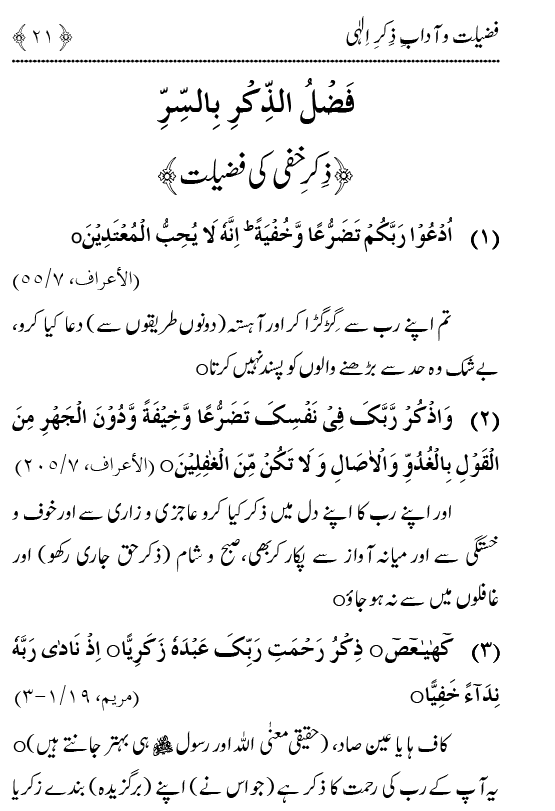 فضیلت و آدابِ ذِکرِ اِلٰہی ﴿ ۲۱ ﴾
فَضْلُ الذِّکْرِ بِالسِّرِّ
﴿ذِکرِ خفی کی فضیلت﴾
(۱) اُدْعُوْا رَبَّکُمْ تَضَرُّعًا وَّخُفْيَةً ؕ اِنَّهٗ لَا يُحِبُّ الْمُعْتَدِيْنَo
(الأعراف، ۷/۵۵)
تم اپنے رب سے گِڑگڑا کر اور آہستہ (دونوں طریقوں سے) دعا کیا کرو،
بے شک وہ حد سے بڑھنے والوں کو پسند نہیں کرتاo
(۲) وَاذْکُرْ رَّبَّکَ فِیْ نَفْسِکَ تَضَرُّعًا وَّخِيْفَةً وَّدُوْنَ الْجَهْرِ مِنَ
الْقَوْلِ بِالْغُدُوِّ وَالْاٰصَالِ وَ لَا تَکُنْ مِّنَ الْغٰفِلِيْنَo (الأعراف، ۷/۲۰۵)
اور اپنے رب کا اپنے دل میں ذکر کیا کرو عاجزی و زاری سے اور خوف و
خستگی سے اور میانہ آواز سے پکار کر بھی، صبح و شام (ذکرِ حق جاری رکھو) اور
غافلوں میں سے نہ ہو جاؤo
(۳) کٓهٰيٰعٓصٓo ذِکْرُ رَحْمَتِ رَبِّکَ عَبْدَهٗ زَکَرِيَّاo اِذْ نَادٰی رَبَّهٗ
نِدَآءً خَفِيًّاo (مریم، ۱۹/۱-۳)
کاف ہا یا عین صاد، (حقیقی معنیٰ اللہ اور رسول ﷺ ہی بہتر جانتے ہیں)o
یہ آپ کے رب کی رحمت کا ذکر ہے (جو اس نے) اپنے (برگزیدہ) بندے زکریا